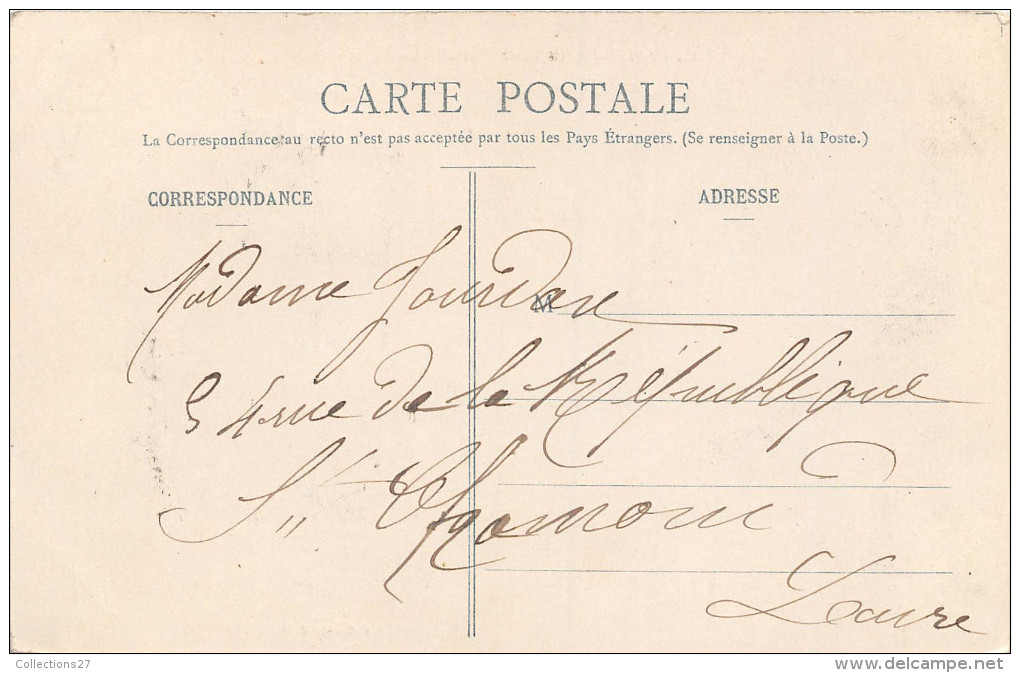 CARTE POSTALE
La Correspondance au recto n'est pas acceptée par tous les Pays Étrangers. (Se renseigner à la Poste.)
CORRESPONDANCE
ADRESSE
M
Madame Jourdan
54 rue de la République
St Chamond
Loire
Collections27
www.delcampe.net